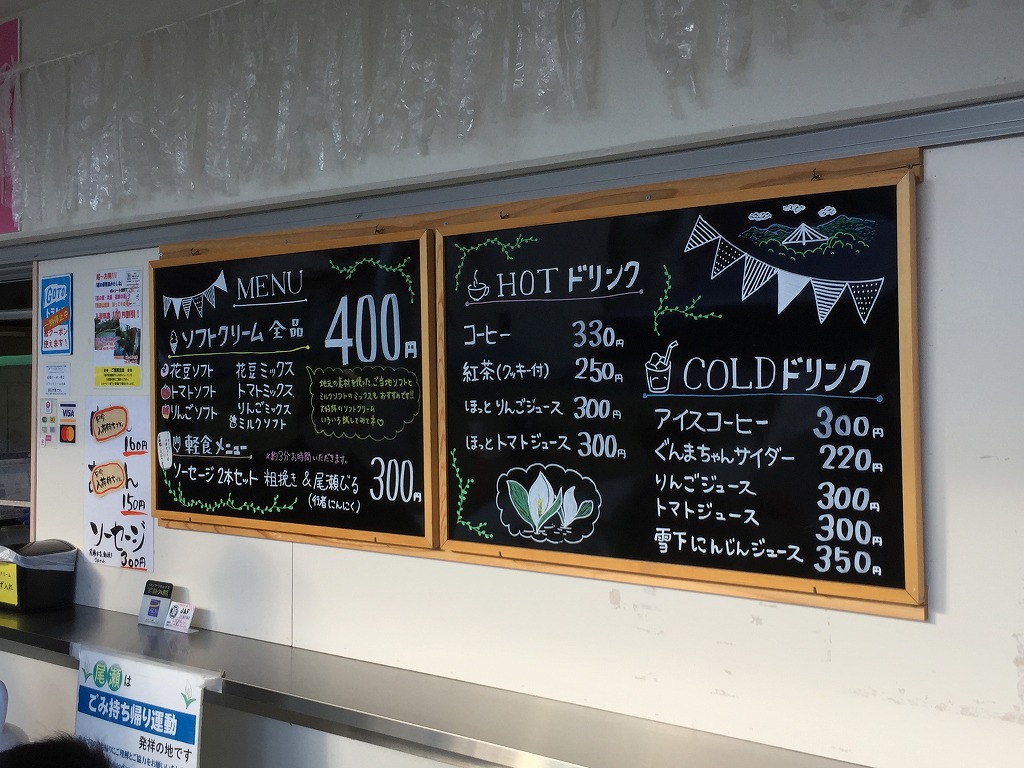 MENU
ソフトクリーム 全品 400円
花豆ソフト 花豆ミックス
トマトソフト トマトミックス
りんごソフト りんごミックス
ミルクソフト
地元の素材を使ったご当地ソフトと
ミルクソフトのミックスもおすすめです!!
大好評のソフトクリーム
いろいろ試してみてネ♡
軽食メニュー
*約3分お時間いただきます。
ソーセージ 2本セット 粗挽き&尾瀬びる 300円
(行者にんにく)
HOT ドリンク
コーヒー 330円
紅茶(クッキー付) 250円
ほっとりんごジュース 300円
ほっとトマトジュース 300円
COLDドリンク
アイスコーヒー 300円
ぐんまちゃんサイダー 220円
りんごジュース 300円
トマトジュース 300円
雪下にんじんジュース 350円
GOTO
トラベル
一時停止中
使えます!
VISA
160円
150円
ソーセージ
300円
JAF
尾瀬は
ごみ持ち帰り運動
発祥の地です